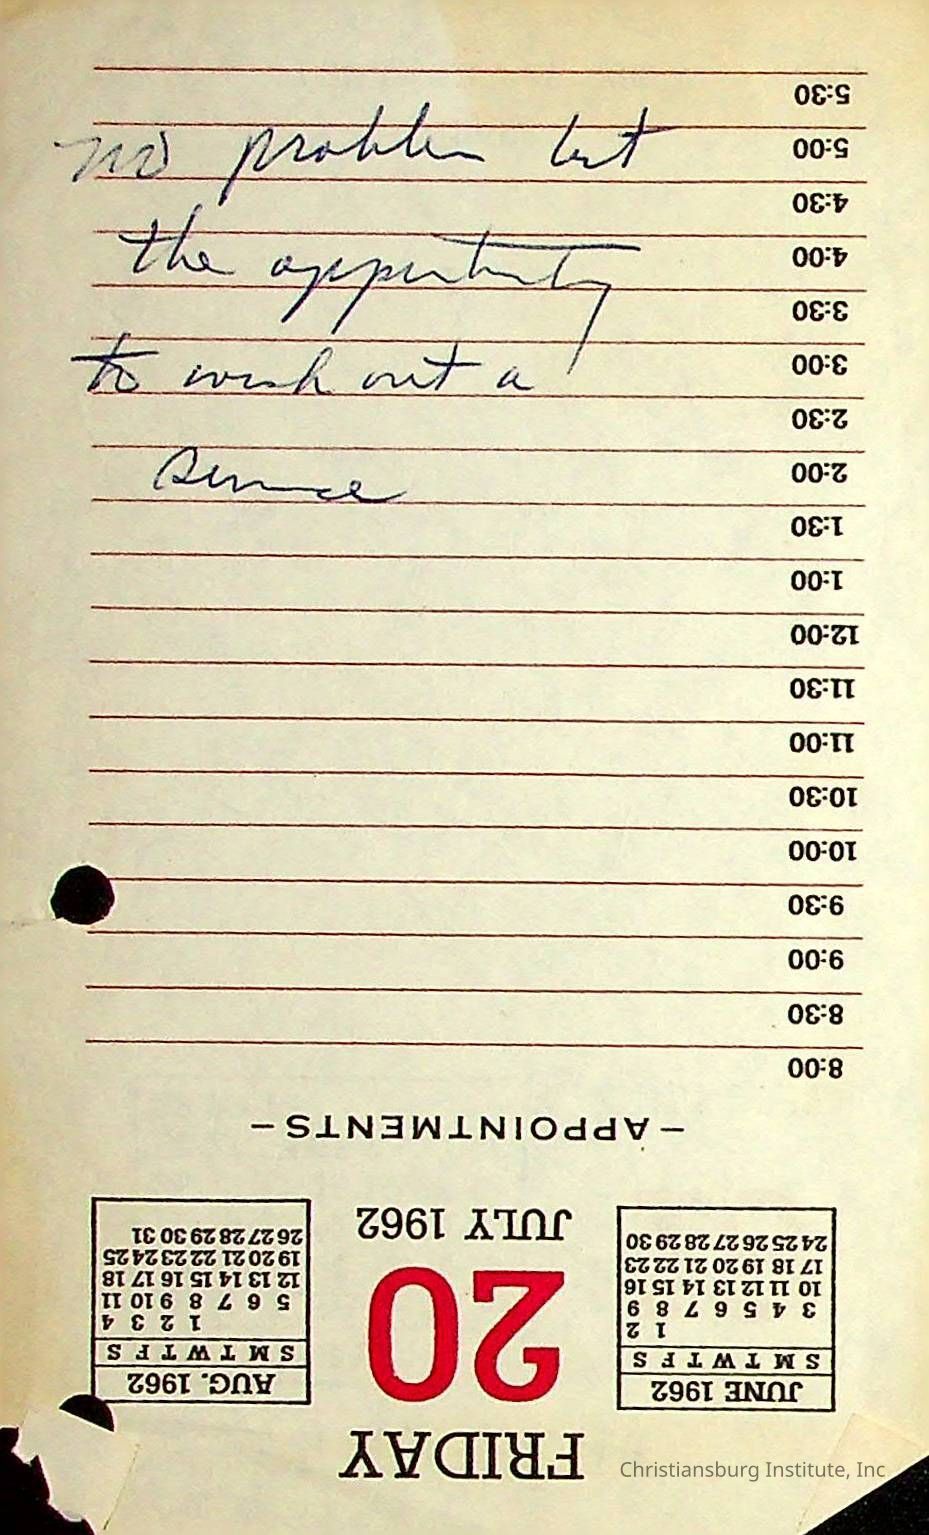 no problem but
the opportunity
to work out a
service
FRIDAY
JUNE 1962
S M T W T F S
1 2
3 4 5 6 7 8 9
10 11 12 13 14 15 16
17 18 19 20 21 22 23
24 25 26 27 28 29 30
20
JULY 1962
AUG. 1962
S M T W T F S
1 2 3 4
5 6 7 8 9 10 11
12 13 14 15 16 17 18
19 20 21 22 23 24 25
26 27 28 29 30 31
—APPOINTMENTS—
8:00
8:30
9:00
9:30
10:00
10:30
11:00
11:30
12:00
1:00
1:30
2:00
2:30
3:00
3:30
4:00
4:30
5:00
5:30
Christiansburg Institute, Inc